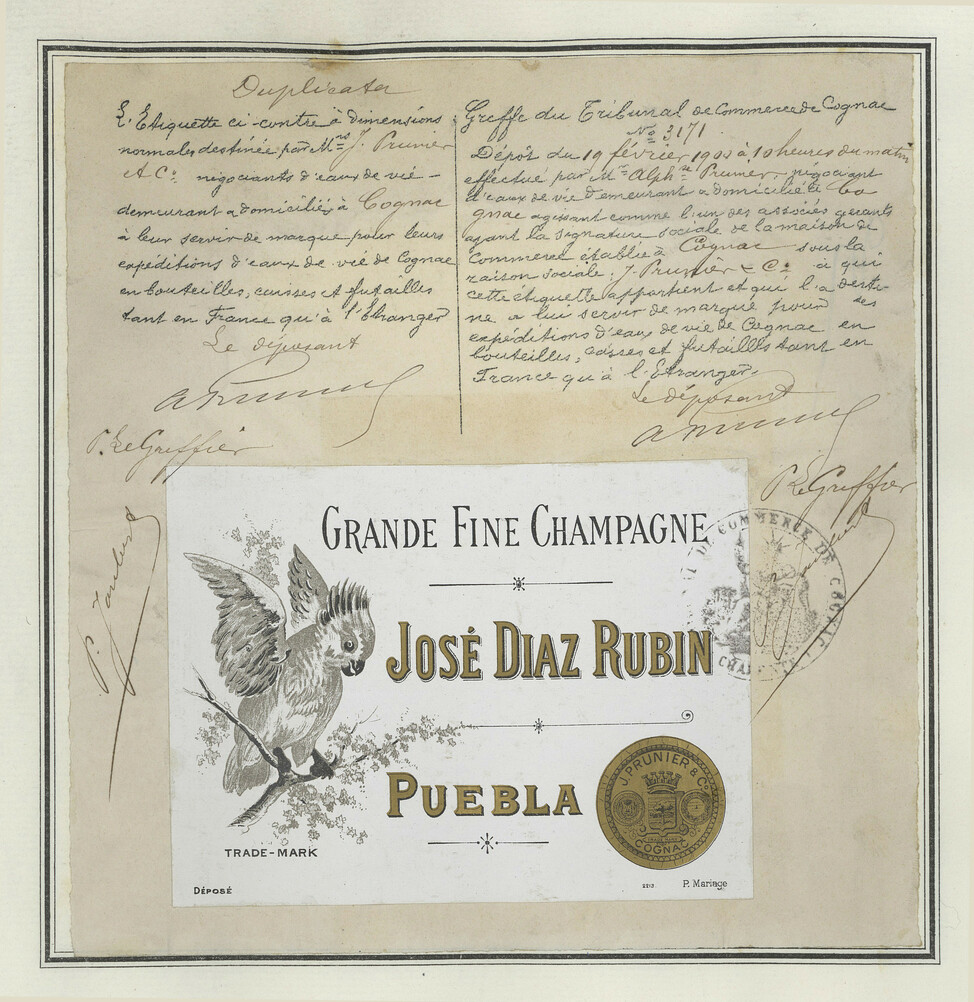 Duplicata
L'Etiquette ci-contre à dimensions
normales destinée par Mrs J. Prunier
et Co négociants d'eaux de vie -
demeurant & domiciliés à Cognac
à leur servir de marque pour leurs
expéditions d'eaux de vie de Cognac
en bouteilles, caisses et futailles
tant en France qu'à l'Etranger
Le déposant
P. Le Greffier
Greffe du Tribunal de Commerce de Cognac
No 3171
Dépôt du 19 février 1900 à 10 heures du matin
effectué par Mr Alphse Prunier, négociant
d'eaux de vie demeurant & domicilié à Co
gnac agissant comme l'un des associés gérants
ayant la signature sociale de la maison de
Commerce établie à Cognac sous la
raison sociale: J. Prunier & Co à qui
cette étiquette appartient et qui l'a desti-
ne à lui servir de marque pour ses
expéditions d'eaux de vie de Cognac en
bouteilles, caisses et futailles tant en
France qu'à l'Etranger.
Le déposant
P. Le Greffier
GRANDE FINE CHAMPAGNE
JOSÉ DIAZ RUBIN
PUEBLA
J. PRUNIER & Co
COGNAC
COMMERCE DE COGNAC
TRADE-MARK
DÉPOSÉ
P. Mariage